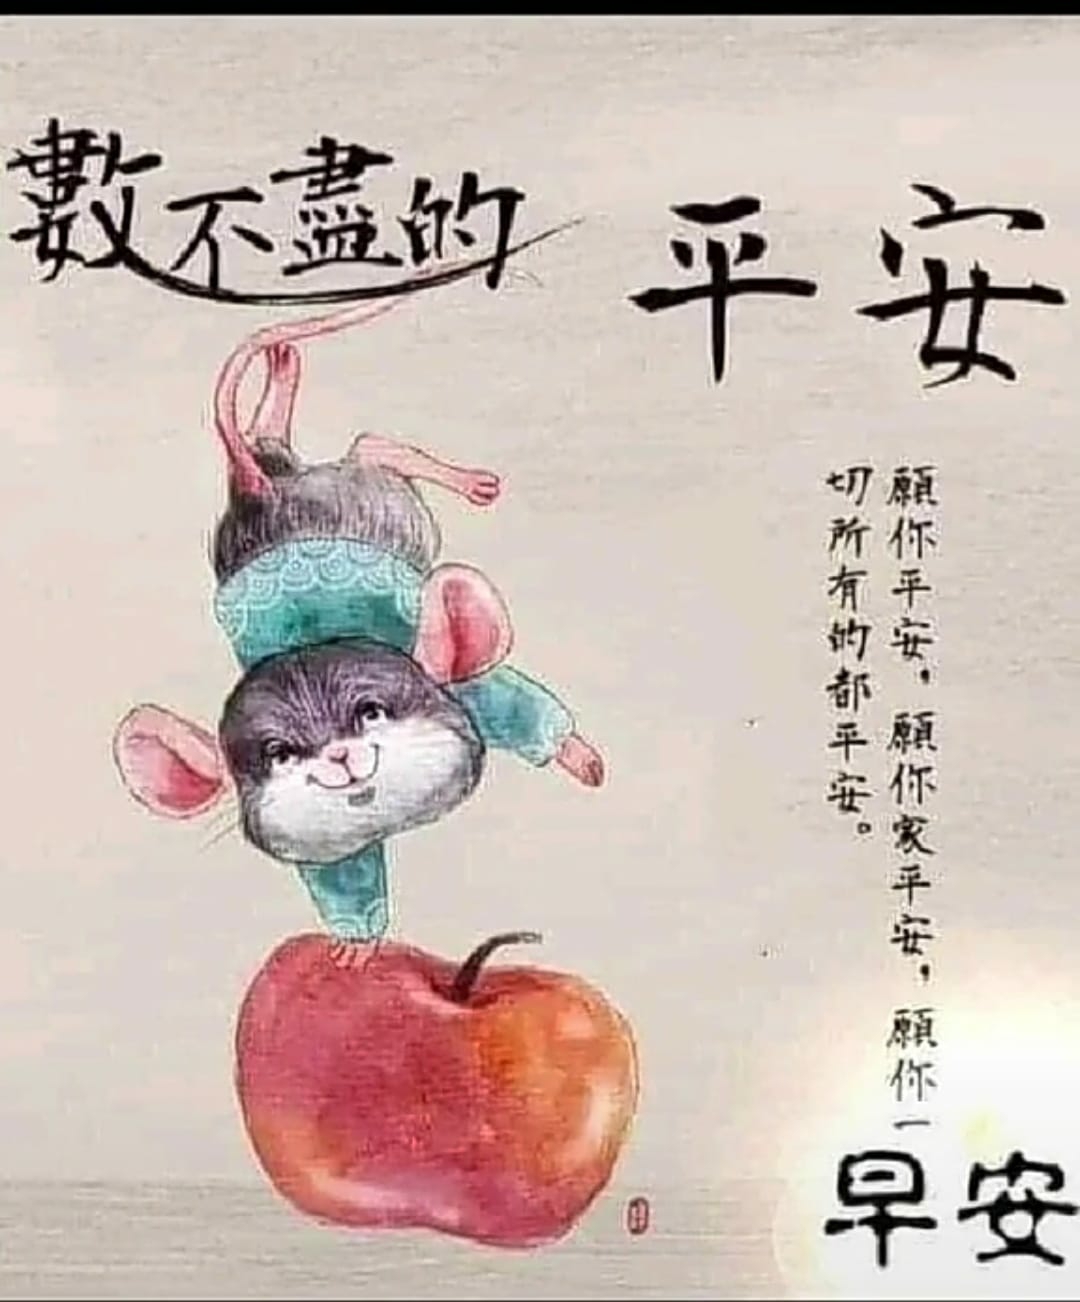 數不盡的 平安
願你平安，願你家平安，願你一
切所有的都平安。
早安